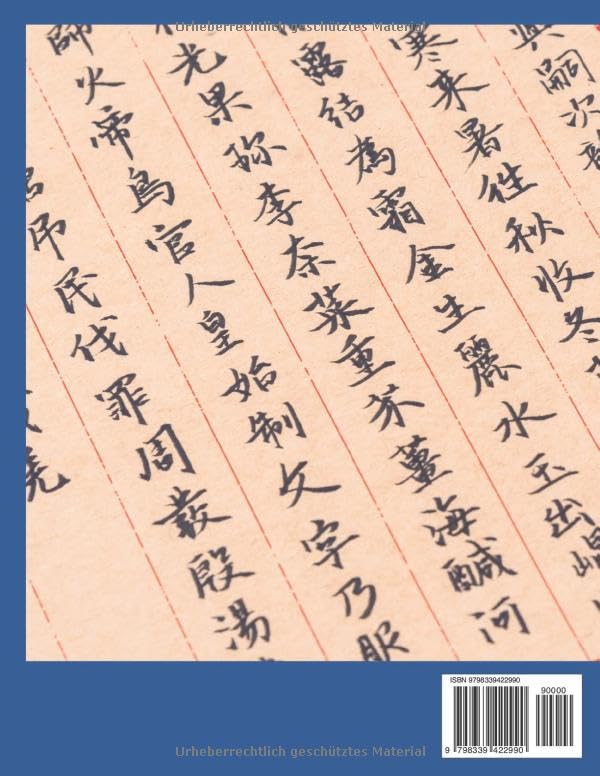 Urheberrechtlich geschütztes Material
嗣次
寒來暑往秋收冬
露結為霜金生麗水玉出崐
光果珎李奈菜重芥薑海鹹河
師火帝鳥官人皇始制文字乃服
吊民伐罪周發殷湯
羌
ISBN 9798339422990
90000
9 798339 422990
Urheberrechtlich geschütztes Material